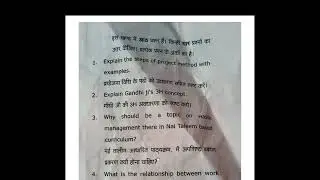 इस खण्ड में आठ प्रश्न हैं। किन्हीं चार प्रश्नों का
उत्तर दीजिए। प्रत्येक प्रश्न के अंकों का है।
1. Explain the steps of project method with
examples.
प्रायोजना विधि के पदों को उदाहरण सहित स्पष्ट करें।
2. Explain Gandhi Ji's 3H concept.
गाँधी जी की 3H अवधारणा को स्पष्ट करें।
3. Why should be a topic on waste
management there in Nai Taleem based
curriculum?
नई तालीम आधारित पाठ्यक्रम में अपशिष्ट प्रबंधन
प्रकरण क्यों होना चाहिए?
4. What is the relationship between work